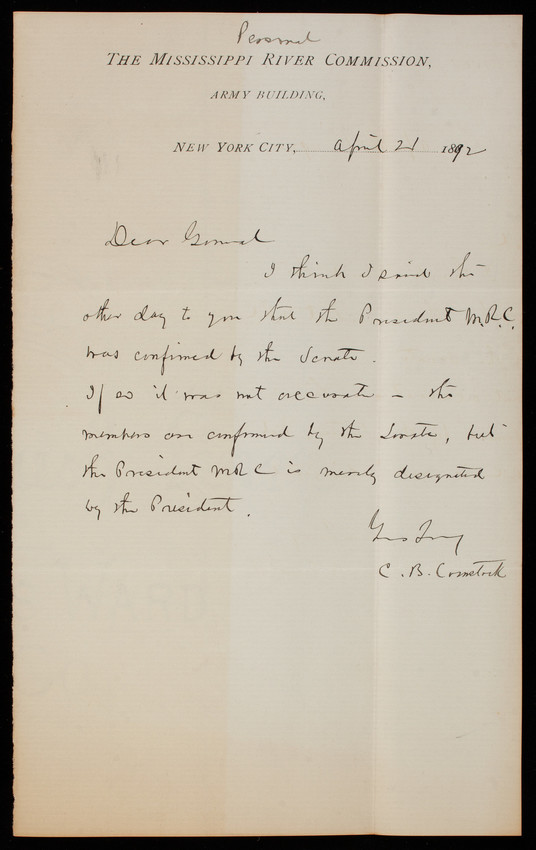 Personal
THE MISSISSIPPI RIVER COMMISSION,
ARMY BUILDING,
NEW YORK CITY, April 21 1892
Dear General
I think I said the
other day to you that the President M.R.C.
was confirmed by the Senate.
If so it was not accurate – the
members are confirmed by the Senate, but
the President MRC is merely designated
by the President.
Yrs Truly
C. B. Comstock